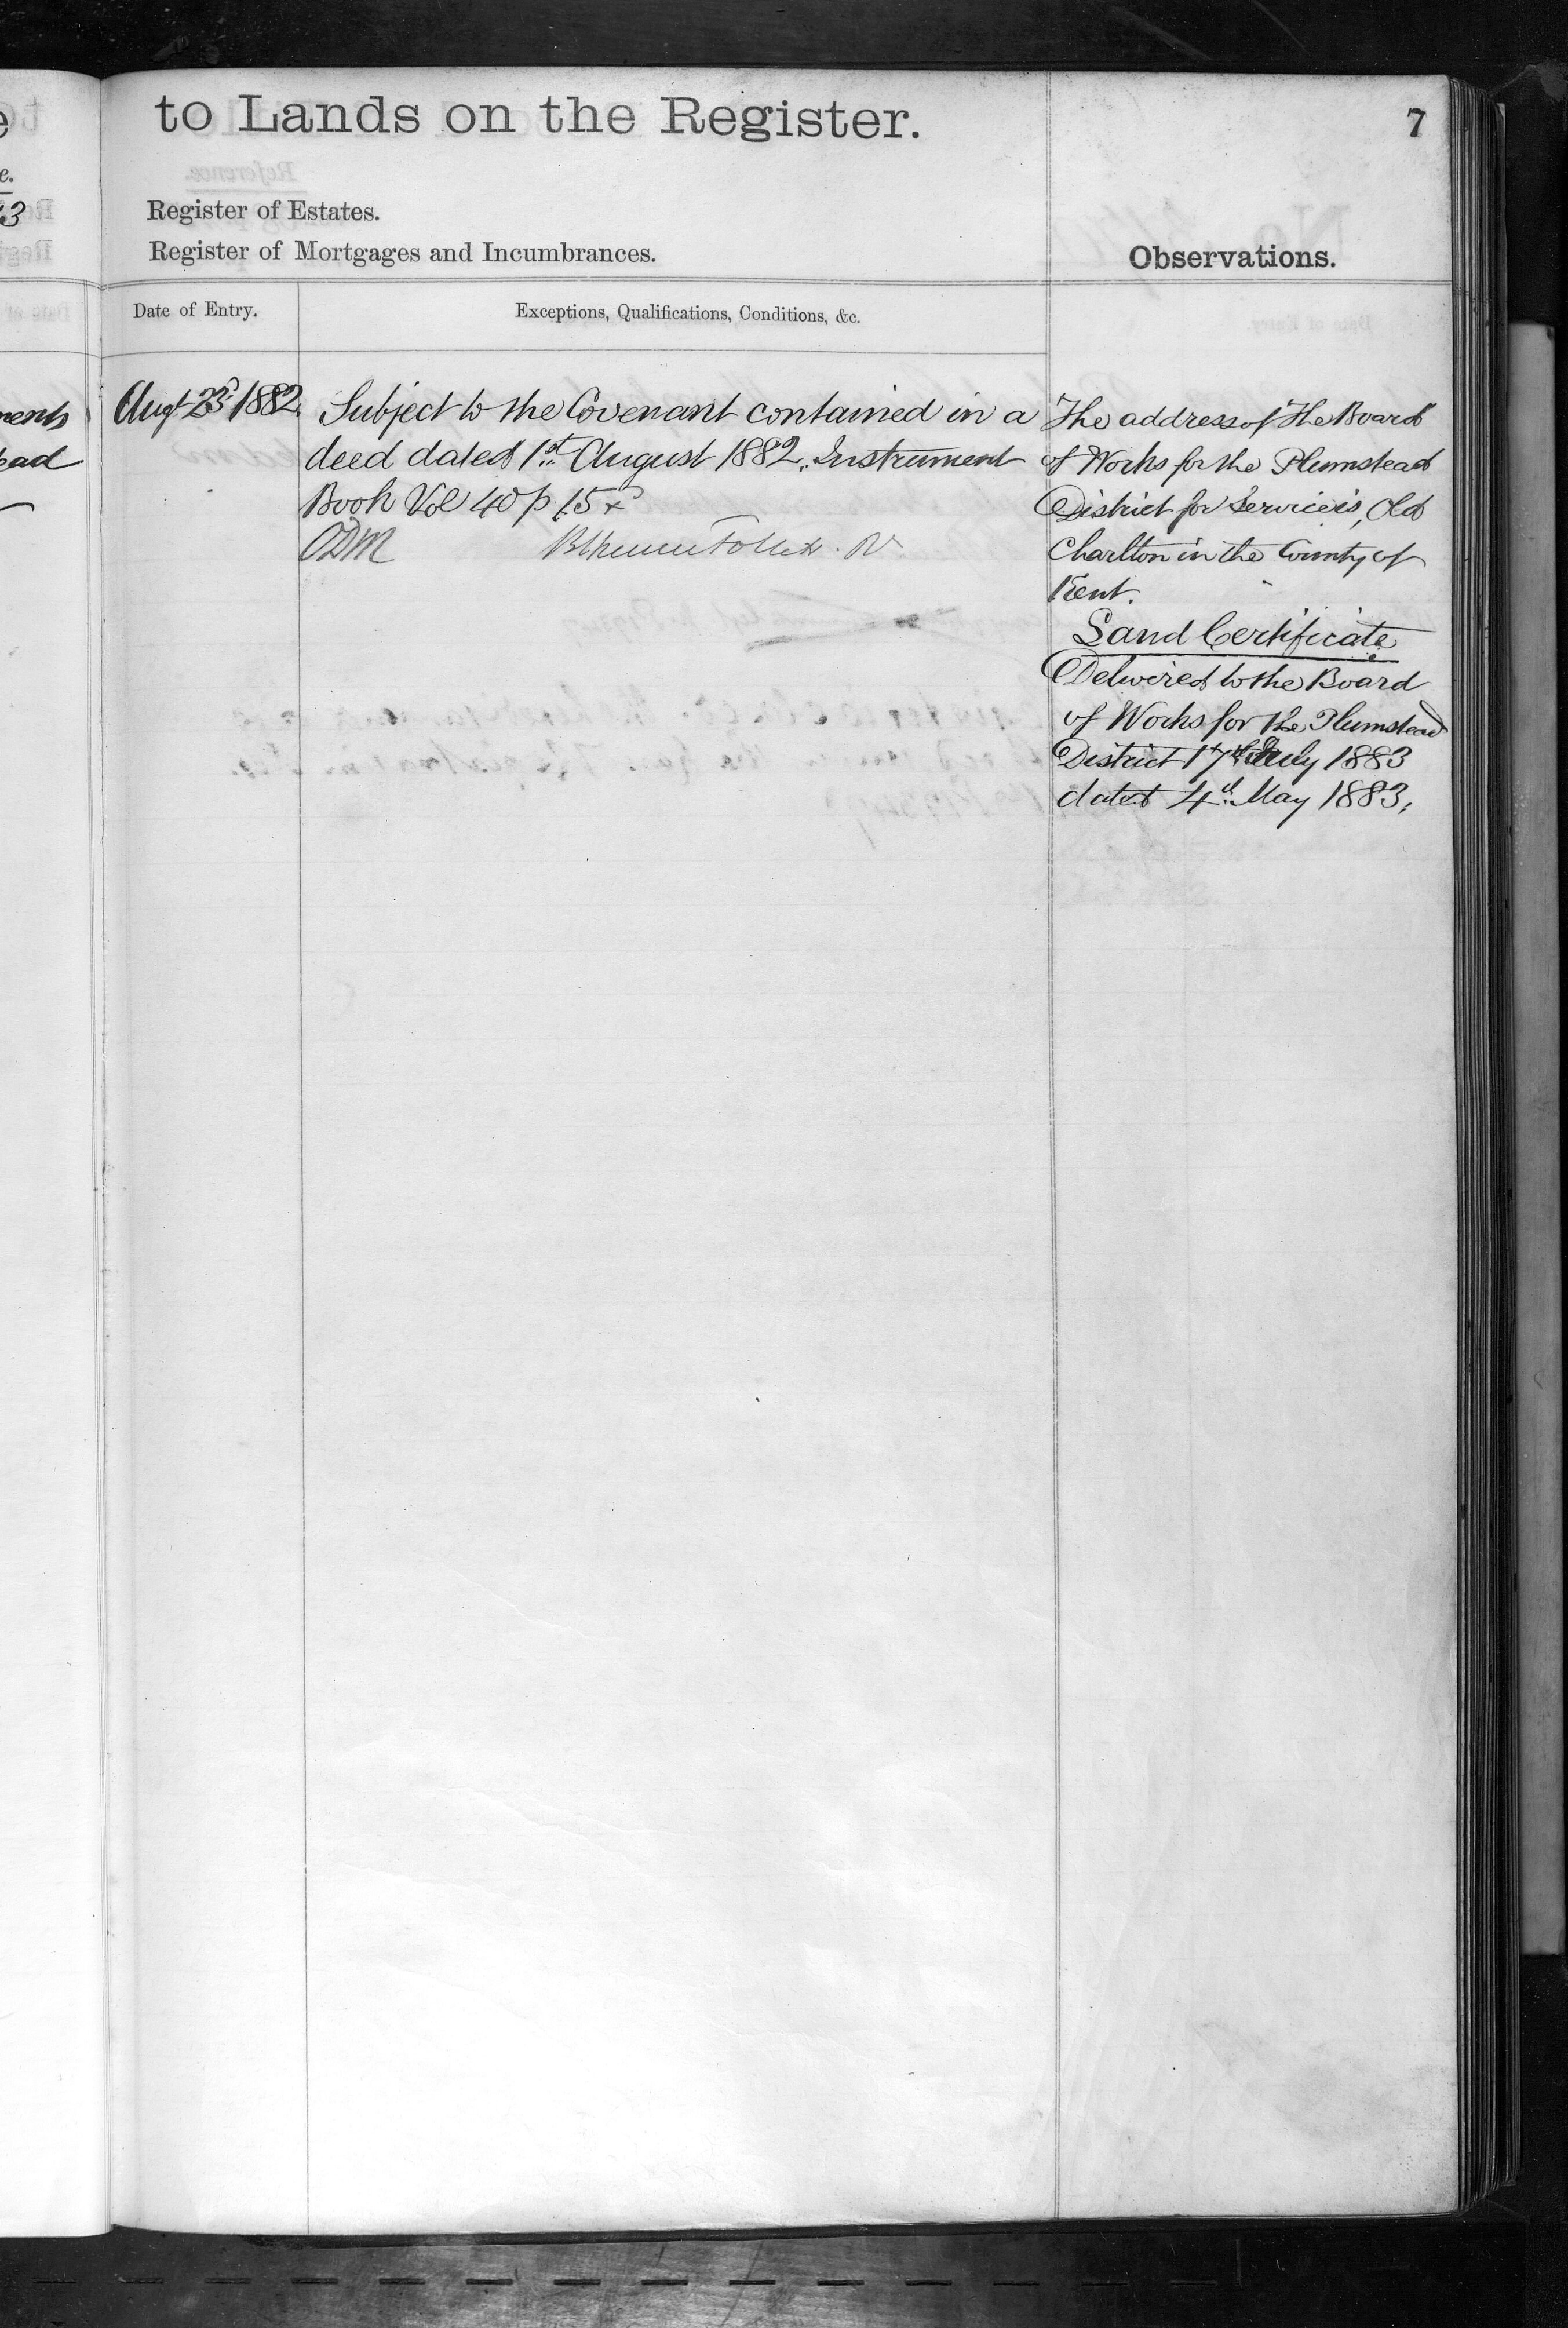 to Lands on the Register.
7
Register of Estates.
Register of Mortgages and Incumbrances.
Observations.
Date of Entry.
Exceptions, Qualifications, Conditions, &c.
Augt 23d 1882.
Subject to the Covenant contained in a
deed dated 1st August 1882, Instrument
Book Vol 40 p 15
ODM
The address of the Board
of Works for the Plumstead
District for Service is, Old
Charlton in the County of
Kent.
Land Certificate
Delivered to the Board
of Works for the Plumstead
District 17th July 1883
dated 4th May 1883,
e.
ments
ead